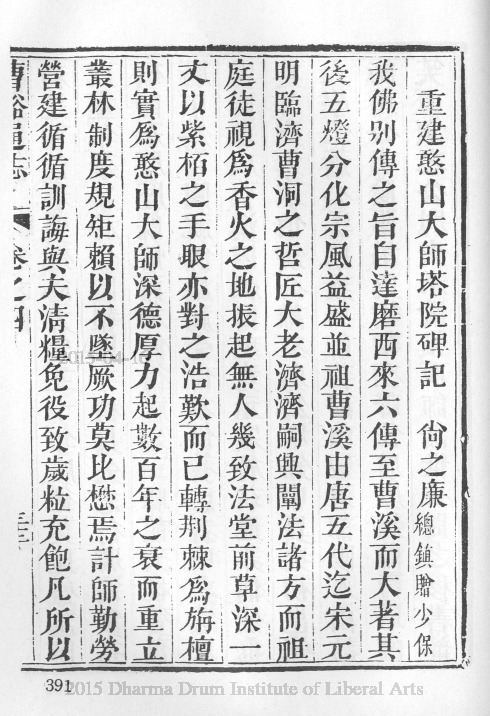 重建憨山大師塔院碑記　尙之廉總鎮贈少保
我佛別傳之旨自達磨西來六傳至曹溪而大著其
後五燈分化宗風益盛並祖曹溪由唐五代迄宋元
明臨濟曹洞之哲匠大老濟濟嗣興闡法諸方而祖
庭徒視爲香火之地振起無人幾致法堂前草深一
丈以紫柘之手眼亦對之浩歎而已轉荆棘爲旃檀
則實爲憨山大師深德厚力起數百年之衰而重立
叢林制度規矩賴以不墜厥功莫比懋焉計師勤勞
營建循循訓誨與夫清糧免役致歲粒充飽凡所以
曹谿通志
卷之四
三三
2015-04-17
391
2015 Dharma Drum Institute of Liberal Arts